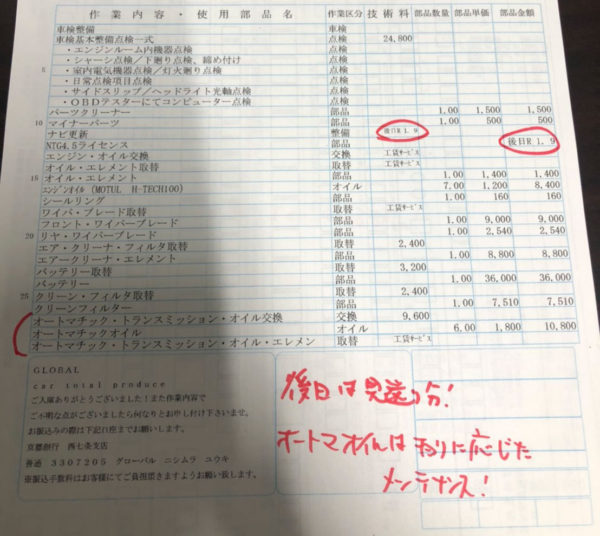 作業内容・使用部品名 作業区分 技術料 部品数量 部品単価 部品金額
車検整備 車検
車検基本整備点検一式 点検 24,800
・エンジンルーム内機器点検 点検
・シャーシ点検/下廻り点検、締め付け 点検
5 ・室内電気機器点検/灯火廻り点検 点検
・日常点検項目点検 点検
・サイドスリップ/ヘッドライト光軸点検 点検
・OBDテスターにてコンピューター点検 点検
パーツクリーナー 部品 1.00 1,500 1,500
10 マイナーパーツ 部品 1.00 500 500
ナビ更新 整備 後日R1.9
NTG4.5ライセンス 部品 後日R1.9
エンジン・オイル交換 交換 工賃サービス
オイル・エレメント取替 取替 工賃サービス
15 オイル・エレメント 部品 1.00 1,400 1,400
エンジンオイル(MOTUL H-TECH100) オイル 7.00 1,200 8,400
シールリング 部品 1.00 160 160
ワイパ・ブレード取替 取替 工賃サービス
フロント・ワイパーブレード 部品 1.00 9,000 9,000
20 リヤ・ワイパーブレード 部品 1.00 2,540 2,540
エア・クリーナ・フィルタ取替 取替 2,400
エアークリーナ・エレメント 部品 1.00 8,800 8,800
バッテリー取替 取替 3,200
バッテリー 部品 1.00 36,000 36,000
25 クリーン・フィルタ取替 取替 2,400
クリーンフィルター 部品 1.00 7,510 7,510
オートマチック・トランスミッション・オイル交換 交換 9,600
オートマチックオイル オイル 6.00 1,800 10,800
オートマチック・トランスミッション・オイル・エレメン 取替 工賃サービス
GLOBAL
car total produce
ご入庫ありがとうございました!また作業内容で
ご不明な点がございましたら何なりとお申し付け下さいませ。
お振込みの際は下記口座までお願いします。
京都銀行 西七条支店
普通 3307205 グローバル・ニシムラ ユウキ
※振込手数料はお客様にてご負担頂きますようお願い致します。
後日は見送り分!
オートマオイルは
に応じた
メンテナンス!